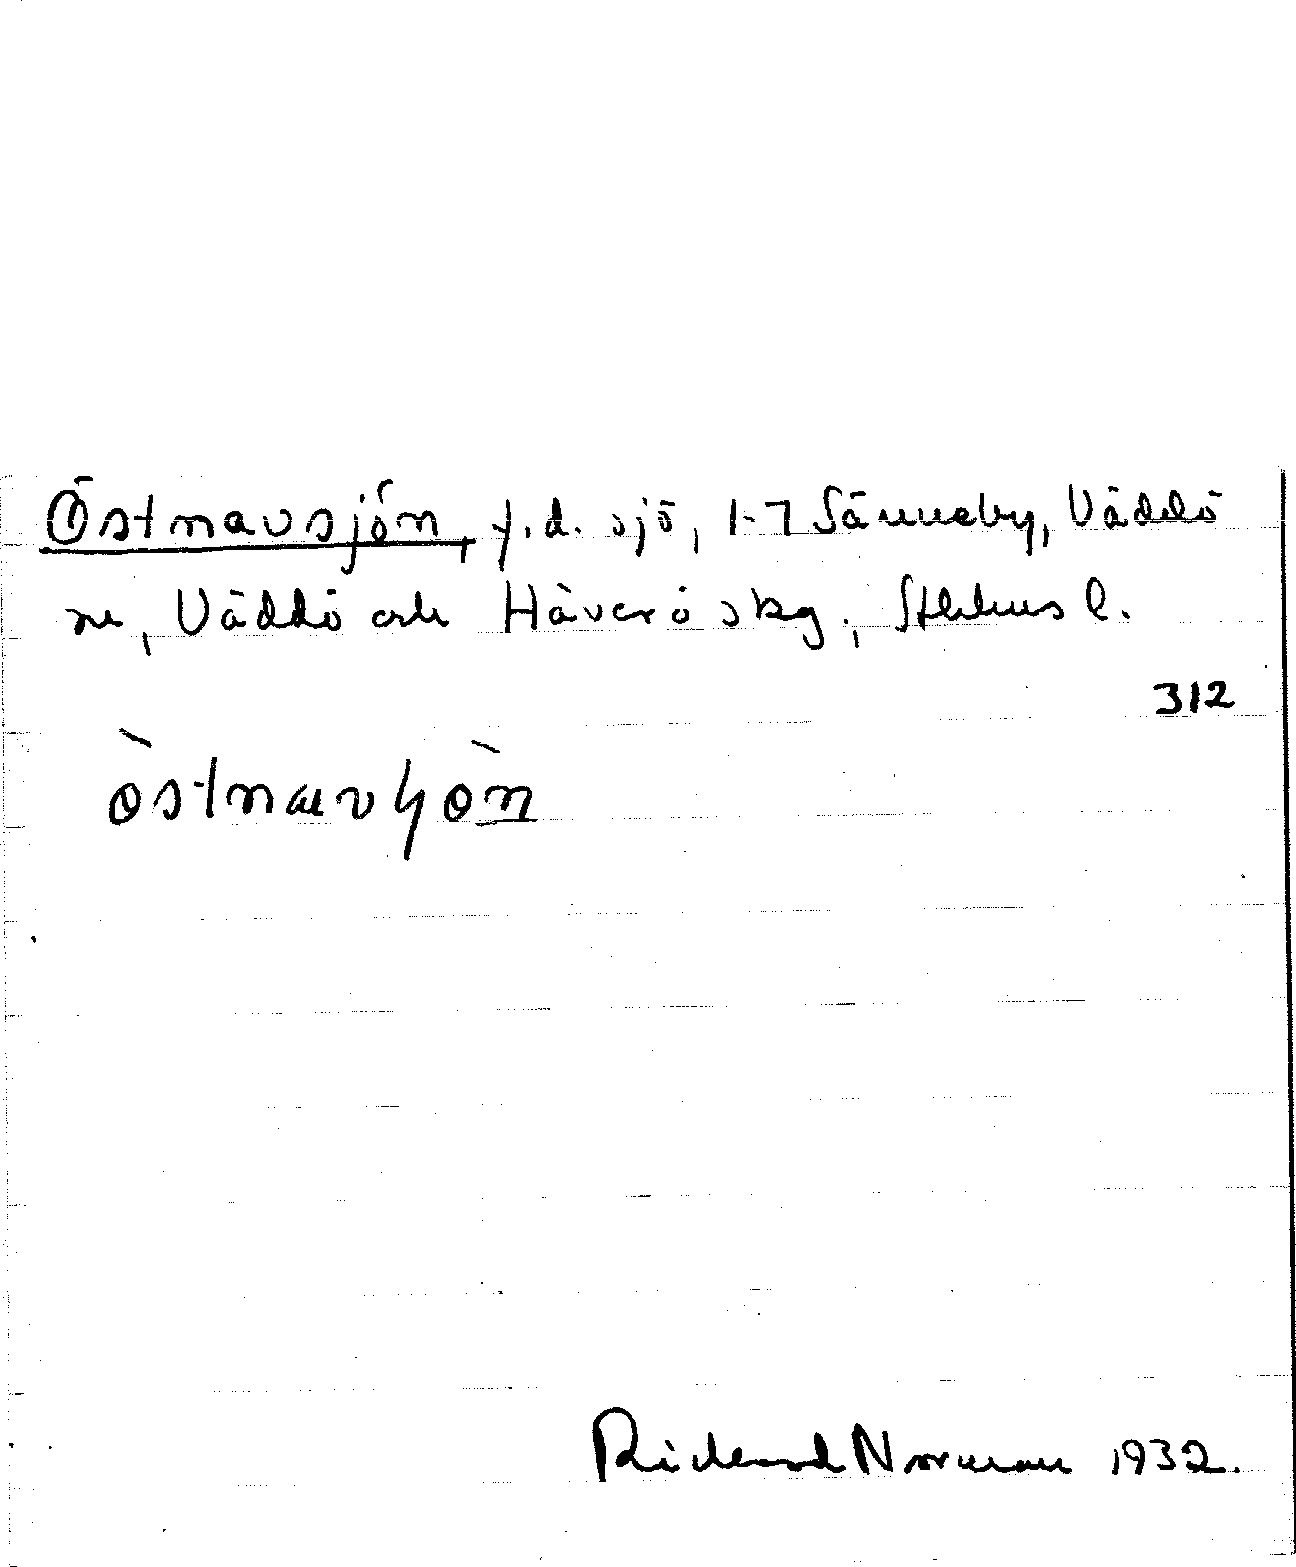 Östnavsjön, f.d. sjö, 1-7 Sänneby, Väddö
sn, Väddö och Häverö skg., Sthlms l.
312
östnavɧön
Rickard Norman 1932.